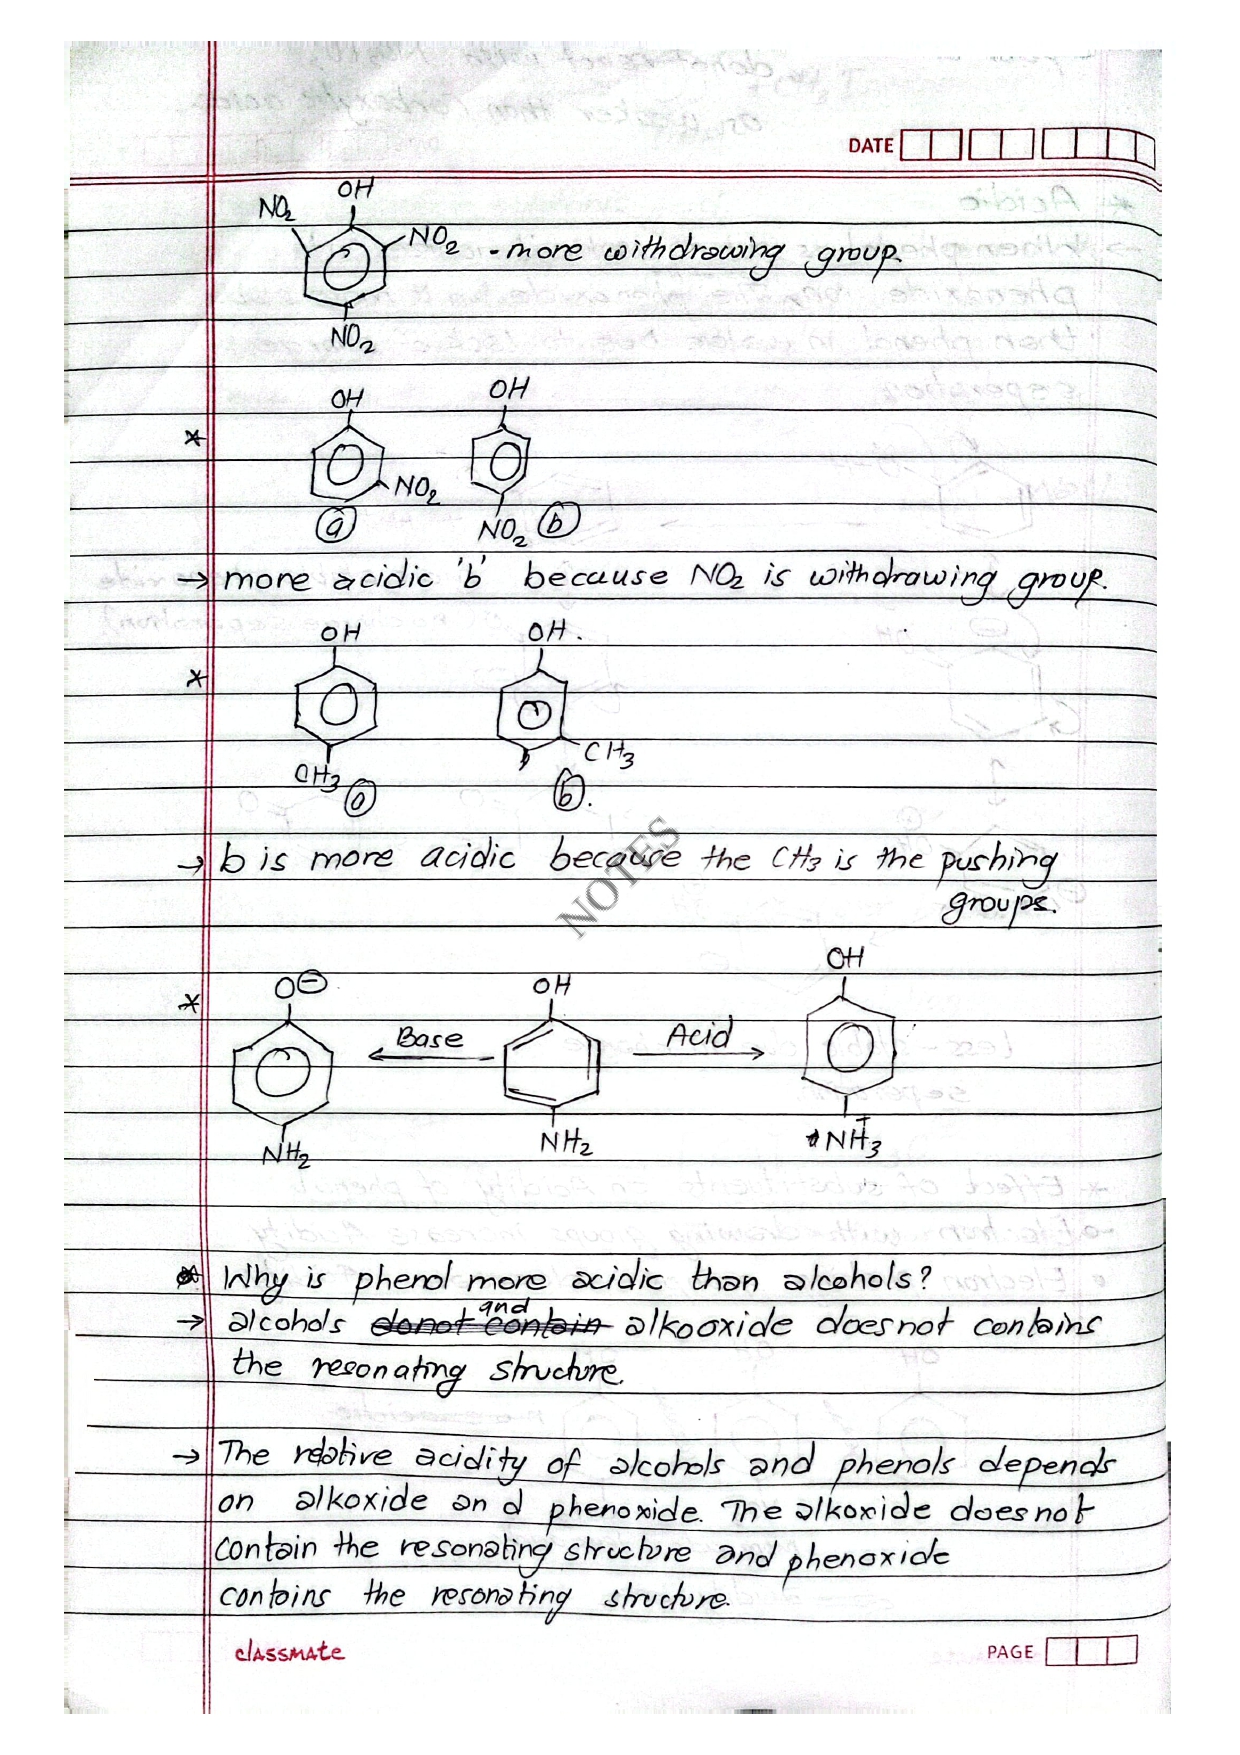 DATE
OH
NO2
NO2 - more withdrawing group.
NO2
OH OH
*
NO2
a NO2 b
→ more acidic 'b' because NO2 is withdrawing group.
OH OH.
*
CH3
CH3 a b.
→ b is more acidic because the CH3 is the pushing
groups.
NOTES
OH
* O⊖ OH
Base Acid
NH2 NH2 +NH3
* Why is phenol more acidic than alcohols?
→ alcohols donot contain and alkooxide doesnot contains
the resonating structure.
→ The relative acidity of alcohols and phenols depends
on alkoxide an d phenoxide. The alkoxide doesnot
contain the resonating structure and phenoxide
contains the resonating structure.
classmate PAGE